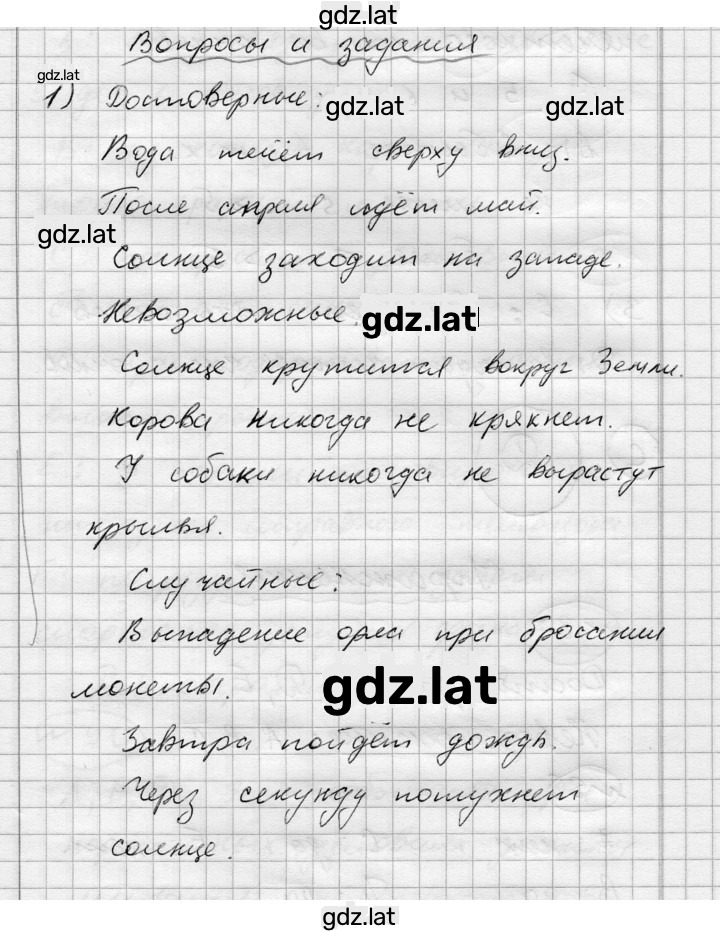 gdz.lat
Вопросы и задания
gdz.lat
1) Достоверные: gdz.lat gdz.lat
Вода течёт сверху вниз.
После апреля идёт май.
gdz.lat
Солнце заходит на западе.
Невозможные. gdz.lat
Солнце крутится вокруг Земли.
Корова никогда не крякнет.
У собаки никогда не вырастут
крылья.
Случайные:
Выпадение орла при бросании
монеты. gdz.lat
Завтра пойдёт дождь.
Через секунду потухнет
солнце.
gdz.lat